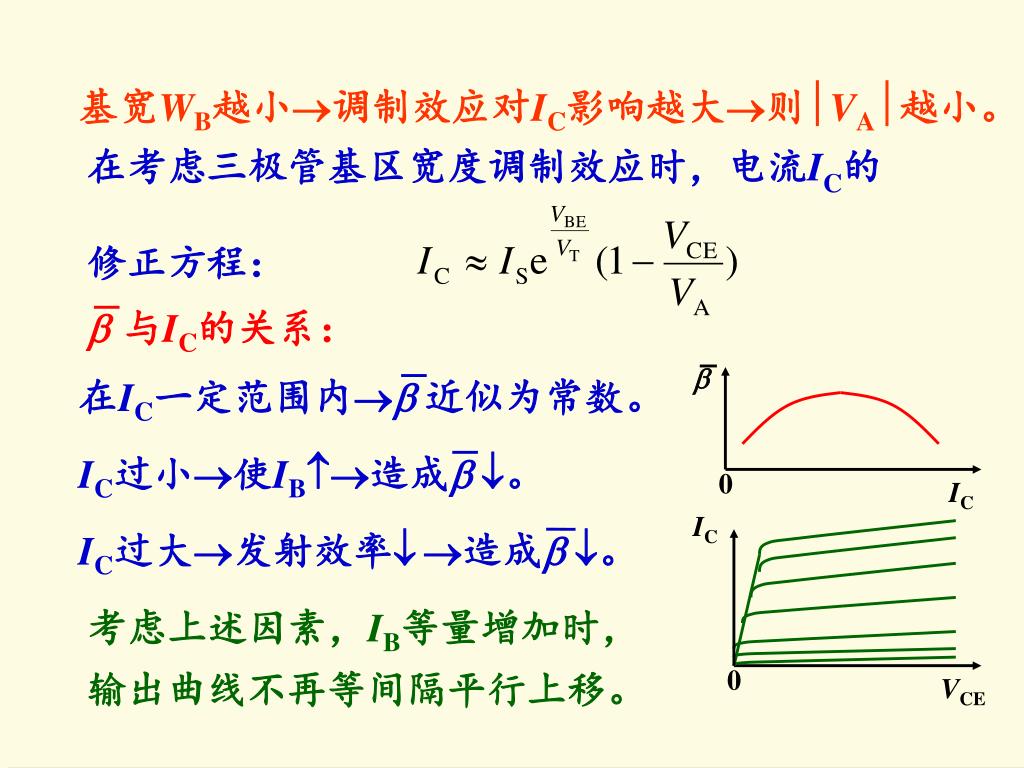 基宽WB越小→调制效应对IC影响越大→则│VA│越小。
在考虑三极管基区宽度调制效应时，电流IC的
修正方程： IC ≈ ISe^(VBE/VT) (1 − VCE/VA)
β̅ 与IC的关系：
在IC一定范围内→β̅ 近似为常数。
IC过小→使IB↑→造成β̅ ↓。
IC过大→发射效率↓→造成β̅ ↓。
考虑上述因素，IB等量增加时，
输出曲线不再等间隔平行上移。
β̅
0
IC
IC
0
VCE